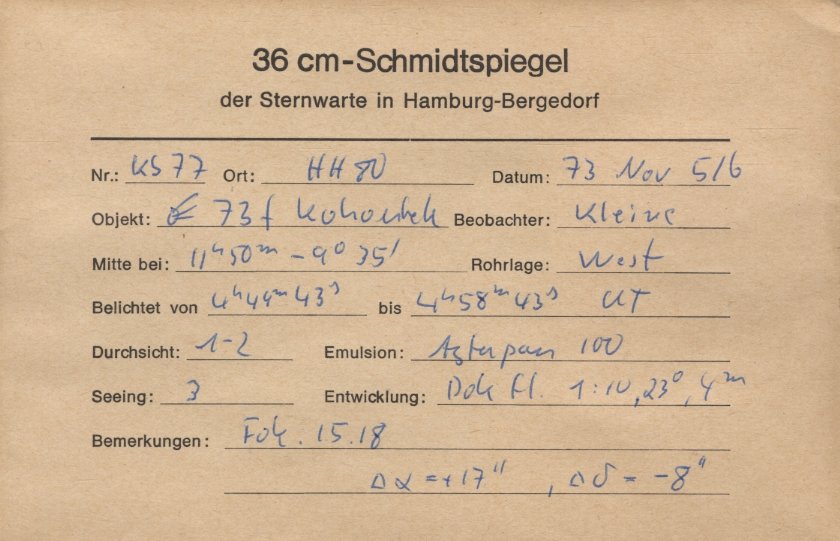 36 cm-Schmidtspiegel
der Sternwarte in Hamburg-Bergedorf
Nr.: KS 77 Ort: HH 80 Datum: 73 Nov 5/6
Objekt: 73 f Kohoutek Beobachter: Kleine
Mitte bei: 11ʰ50ᵐ -9° 35' Rohrlage: West
Belichtet von 4ʰ49ᵐ43ˢ bis 4ʰ58ᵐ43ˢ UT
Durchsicht: 1-2 Emulsion: 100
Seeing: 3 Entwicklung: Dok fl. 1:10, 23°, 4ᵐ
Bemerkungen: Fok. 15.18
Δα = +17", Δδ = -8"